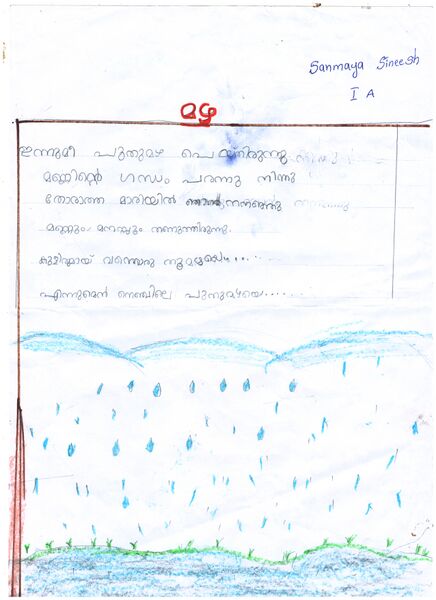 Sanmaya Sineesh
I A
മഴ
ഇന്നുമീ പുതുമഴ പെയ്തിരുന്നു
മണ്ണിന്റെ ഗന്ധം പരന്നു നിന്നു
തോരാത്ത മാരിയിൽ ഞാൻ നനഞ്ഞു
മണ്ണും മനസ്സും തണുത്തിരുന്നു.
കുളിരുമായ് വന്നൊരു
എന്നുമെൻ നെഞ്ചിലെ പുതുമഴയെ......